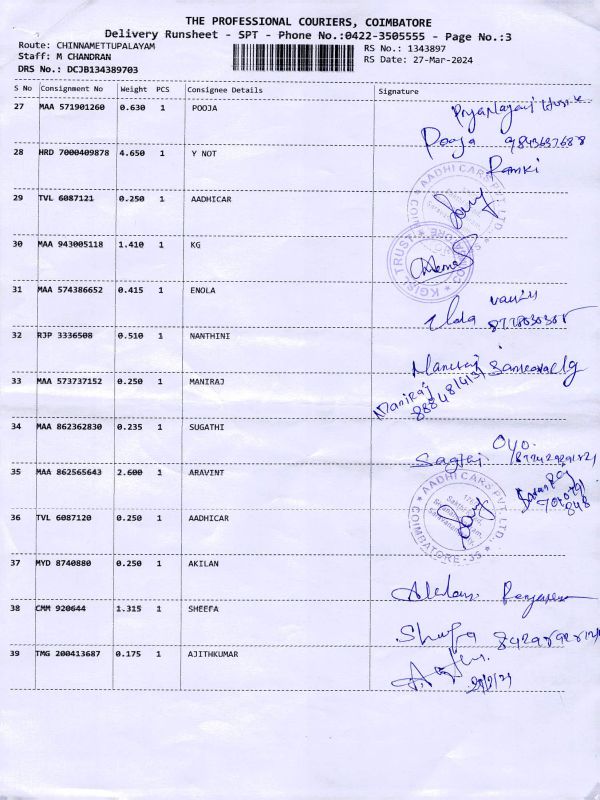 THE PROFESSIONAL COURIERS, COIMBATORE
Delivery Runsheet - SPT - Phone No.:0422-3505555 - Page No.:3
Route: CHINNAMETTUPALAYAM
RS No.: 1343897
Staff: M CHANDRAN
RS Date: 27-Mar-2024
DRS No.: DCJB134389703
S No Consignment No Weight PCS Consignee Details Signature
27 MAA 571901260 0.630 1 POOJA
Pooja 9843637688
28 HRD 7000409878 4.650 1 Y NOT
Ramki
29 TVL 6087121 0.250 1 AADHICAR
AADHI CARS PVT. LTD.
30 MAA 943005118 1.410 1 KG
KGISL TRUST
31 MAA 574386652 0.415 1 ENOLA
32 RJP 3336508 0.510 1 NANTHINI
33 MAA 573737152 0.250 1 MANIRAJ
Maniraj
34 MAA 862362830 0.235 1 SUGATHI
Oyo.
35 MAA 862565643 2.600 1 ARAVINT
36 TVL 6087120 0.250 1 AADHICAR
AADHI CARS PVT. LTD.
COIMBATORE-35
37 MYD 8740880 0.250 1 AKILAN
38 CMM 920644 1.315 1 SHEEFA
39 TMG 200413687 0.175 1 AJITHKUMAR